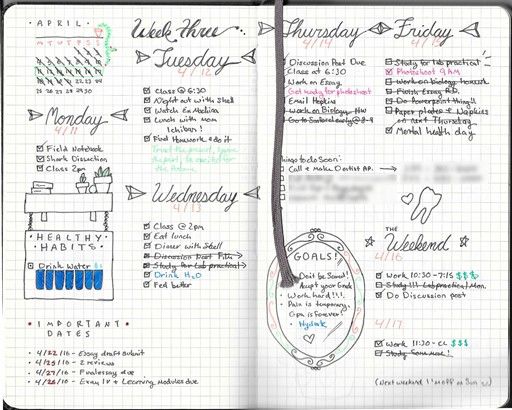 • APRIL •
M T W T F S S
25 26 27 28 29 30
Monday
4/11
Field Notebook
Shark Dissection
Class 2pm
• HEALTHY •
HABITS •
Drink Water
• IMPORTANT •
DATES
• 4/22/16 - Essay draft submit
• 4/25/16 - 2 reviews
• 4/27/16 - Final essay due
• 4/28/16 - Essay IV + Learning Modules due
Week Three
Tuesday
4/12
Class @ 6:30
Night out with Shell
Watch Ex Machina
Lunch with Mom
Ichiban!
Find Homework & do it
Trust the process, you're
Wednesday
4/13
Class @ 2pm
Eat lunch
Dinner with Shell
Discussion Post Film
Study for Lab practical
Drink H2O
Feel better
Thursday
4/14
Discussion Post Due
Class at 6:30
Work on Essay
Get ready for photoshoot
Email Hopkins
Work on Biology HW
Things to do Soon:
Call & Make Dentist AP.
GOALS!
Don't be Scared!
Accept your Grade
Work hard!!!
Pain is temporary,
Gpa is Forever!
Hydrate
Friday
4/15
Study for Lab practical
Photoshoot 9AM
Work on biology homework
Finish Essay R.D.
Do Powerpoint thing!!
Paper plates + Napkins
on Thursday
Mental health day
THE
Weekend
4/16
Work 10:30 - 7:15 $$$
Study!!! Lab practical Mon.
Do Discussion post
4/17
Work 11:30 - CL $$$
Study Some More!
(Next weekend I'm off on Sun